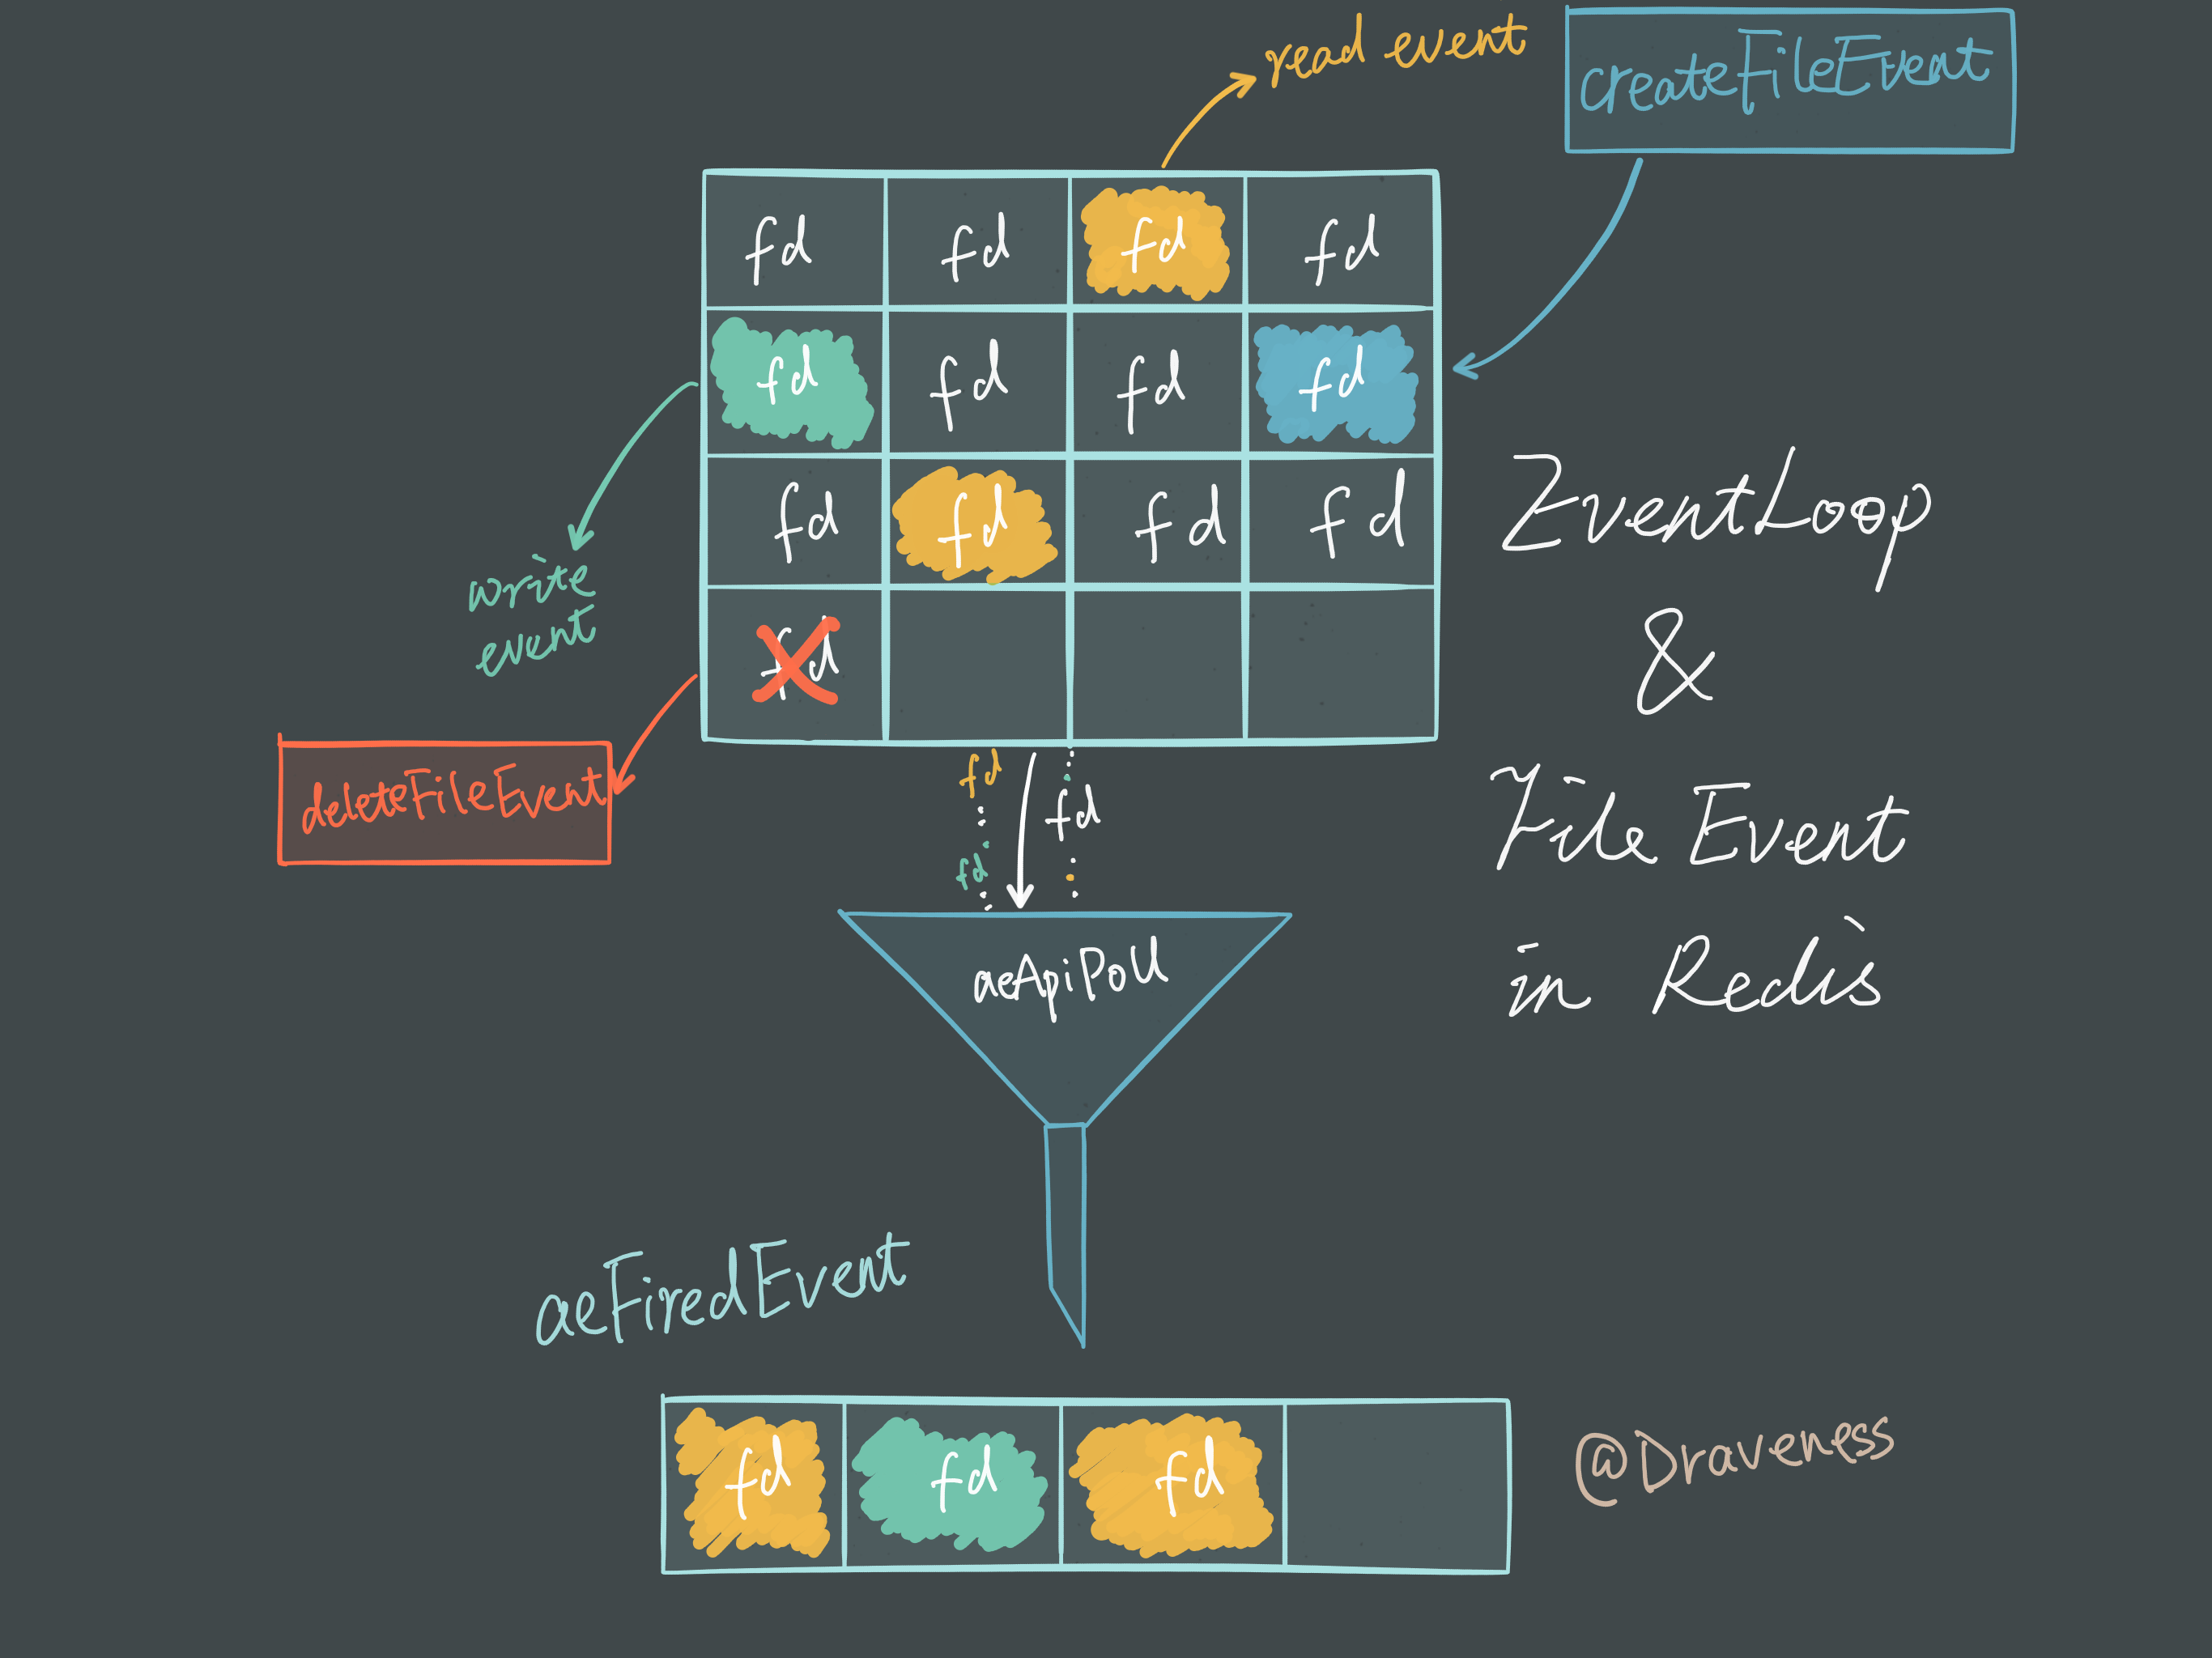 read event
createFileEvent
fd fd fd fd
fd fd fd fd
fd fd fd fd
write
event
fd
EventLoop
&
File Event
in Redis
deleteFileEvent
fd
fd
fd
aeApiPoll
aeFiredEvent
fd fd fd
@Draveness